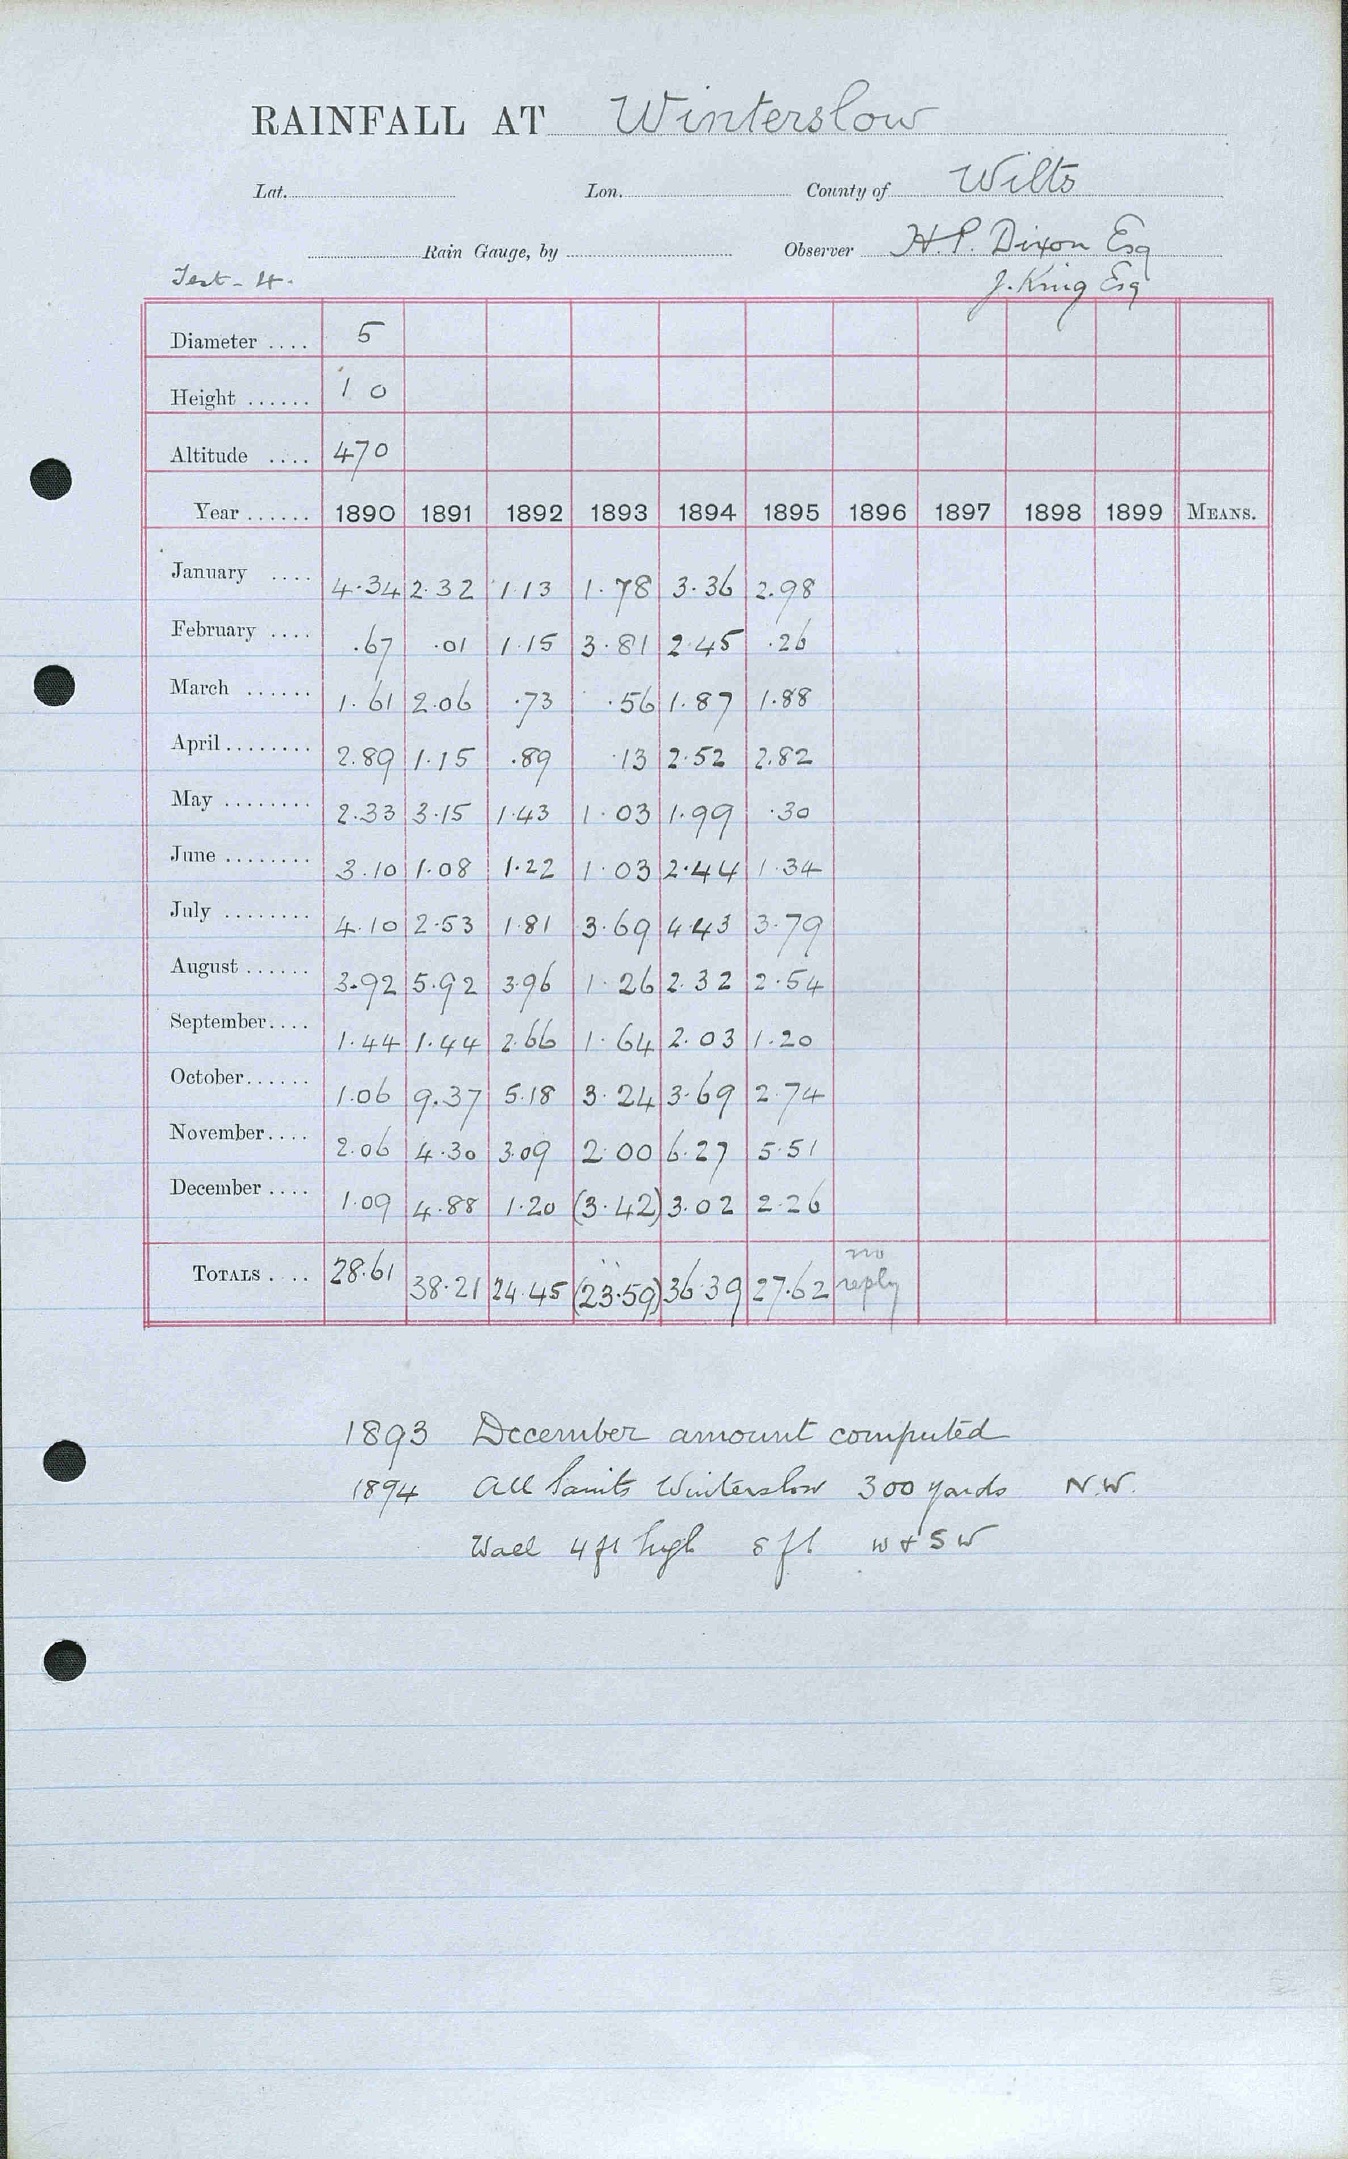 RAINFALL AT Winterslow
Lat. Lon. County of Wilts
Rain Gauge, by Observer H. P. Dixon Esq
Test - 4. J. King Esq
Diameter .... 5
Height ...... 1 0
Altitude .... 470
Year ...... 1890 1891 1892 1893 1894 1895 1896 1897 1898 1899 MEANS.
January .... 4.34 2.32 1.13 1.78 3.36 2.98
February .... .67 .01 1.15 3.81 2.45 .26
March ...... 1.61 2.06 .73 .56 1.87 1.88
April ........ 2.89 1.15 .89 .13 2.52 2.82
May ........ 2.33 3.15 1.43 1.03 1.99 .30
June ........ 3.10 1.08 1.22 1.03 2.44 1.34
July ........ 4.10 2.53 1.81 3.69 4.43 3.79
August ...... 3.92 5.92 3.96 1.26 2.32 2.54
September.... 1.44 1.44 2.66 1.64 2.03 1.20
October...... 1.06 9.37 5.18 3.24 3.69 2.74
November.... 2.06 4.30 3.09 2.00 6.27 5.51
December .... 1.09 4.88 1.20 (3.42) 3.02 2.26
TOTALS .... 28.61 38.21 24.45 (23.59) 36.39 27.62 no reply
1893 December amount computed
1894 All Saints Winterslow 300 yards N.W.
Wall 4 ft high 8 ft W & SW